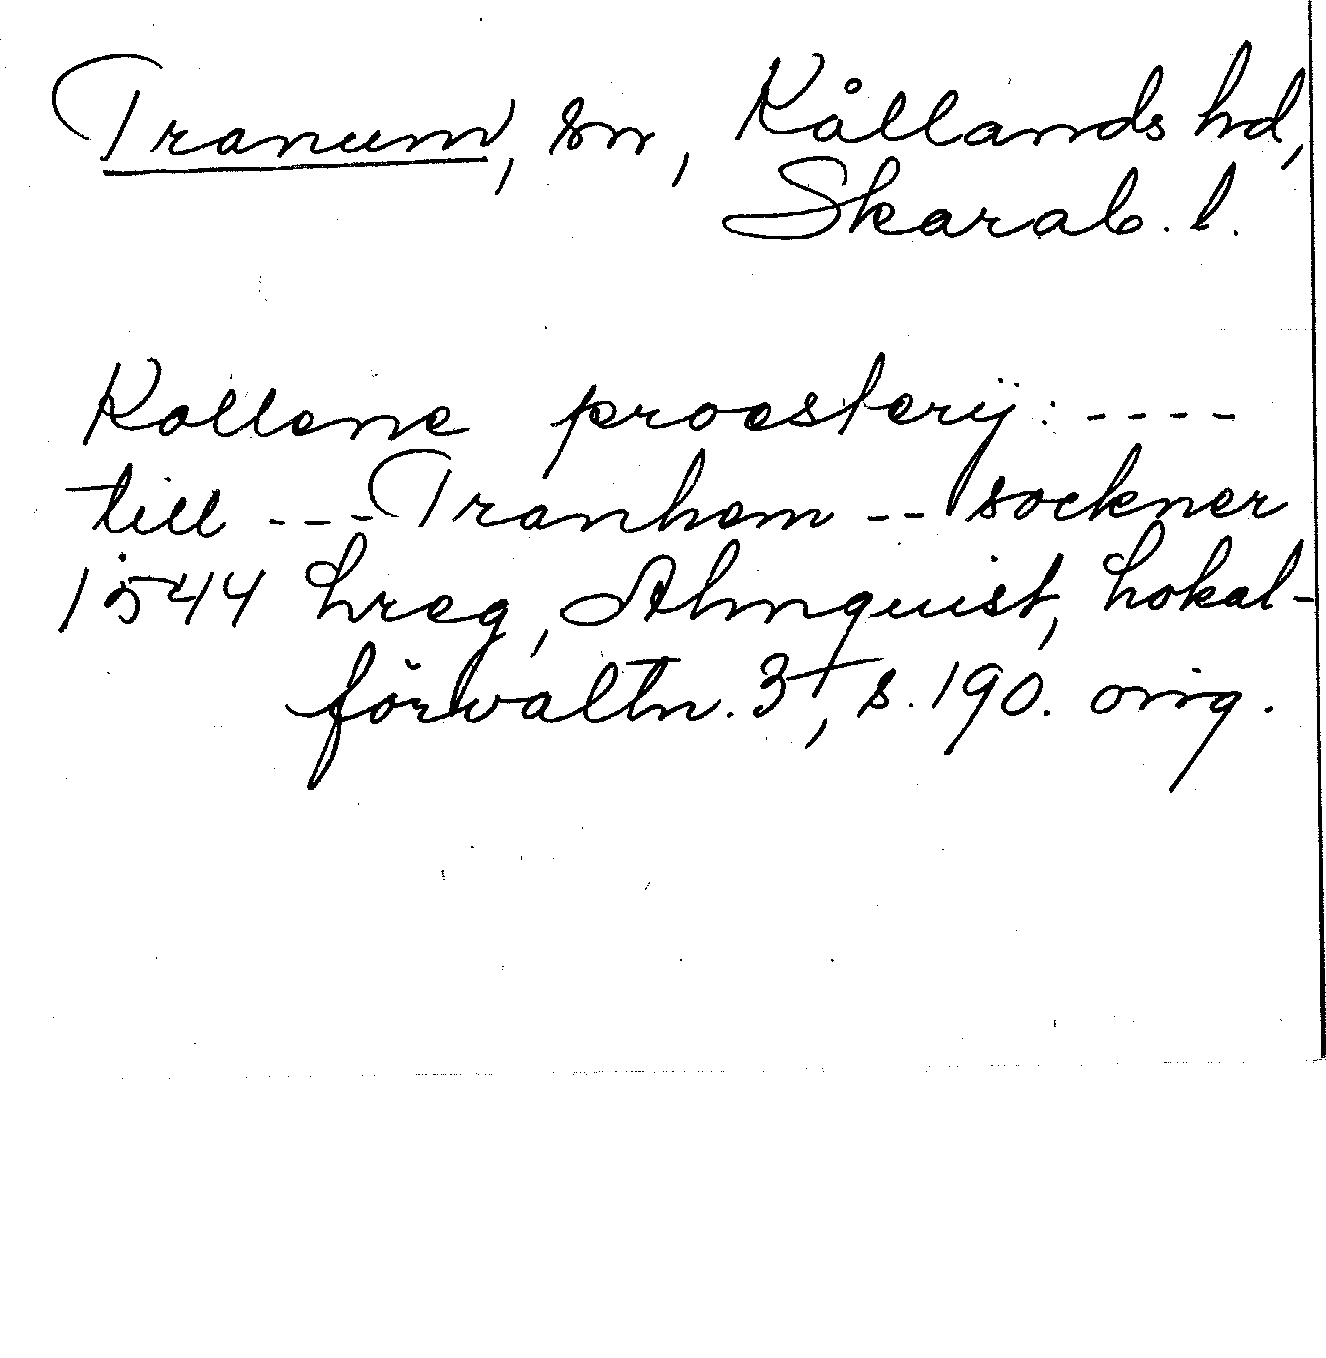 Tranum, sn, Kållands hd,
Skarab. l.
Kollene proesterÿ: ----
till --- Tranhem -- sockner
1544 Lreg, Almquist, Lokal-
förvaltn. 3, s. 190. orig.